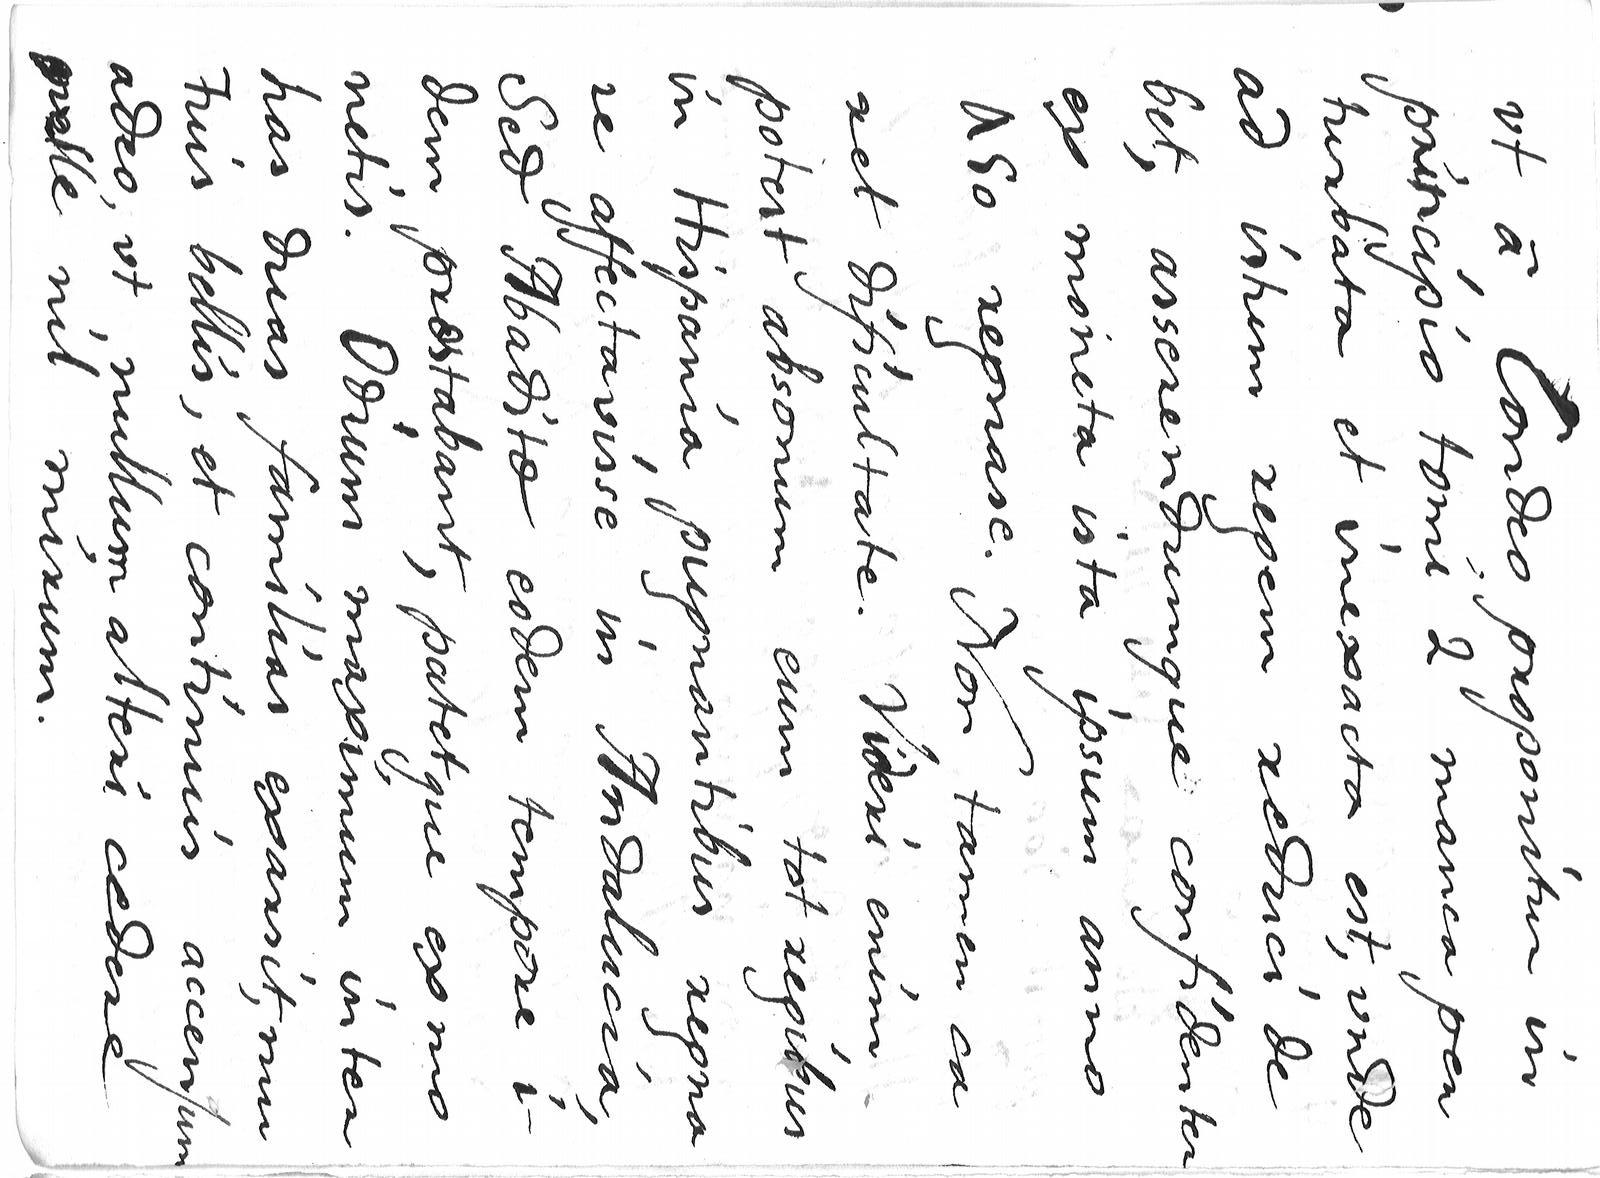 vt â Condeo proponitur in
principio tomi 2 manca per
turbata et inexacta est, vnde
ad istum regem reduci de
bet, asserendumque confidenter
ex moneta ista ipsum anno
450 regnase. Non tamen ca
ret dificultate. Videri enim
potest absonum eum tot regibus
in Hispania pugnantibus regna
re affectavisse in Andalucia,
Sed Abadito eodem tempore i-
dem præstabant, patetque ex mo
netis. Odium maximum inter
has duas familias exarsit, mu
tuis bellis, et continuis accensum
adeo, vt nullum alteri cedere
velle nil mirum.